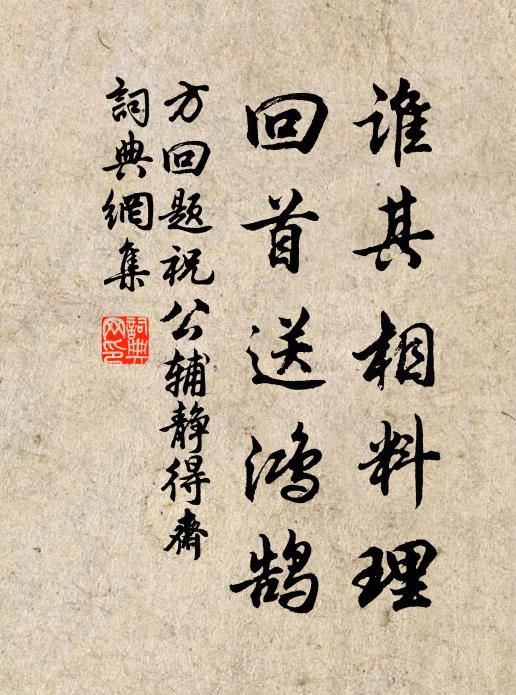 谁其相料理
回首送鸿鹄
方回题祝公辅静得斋
詞典網集
詞典
网印